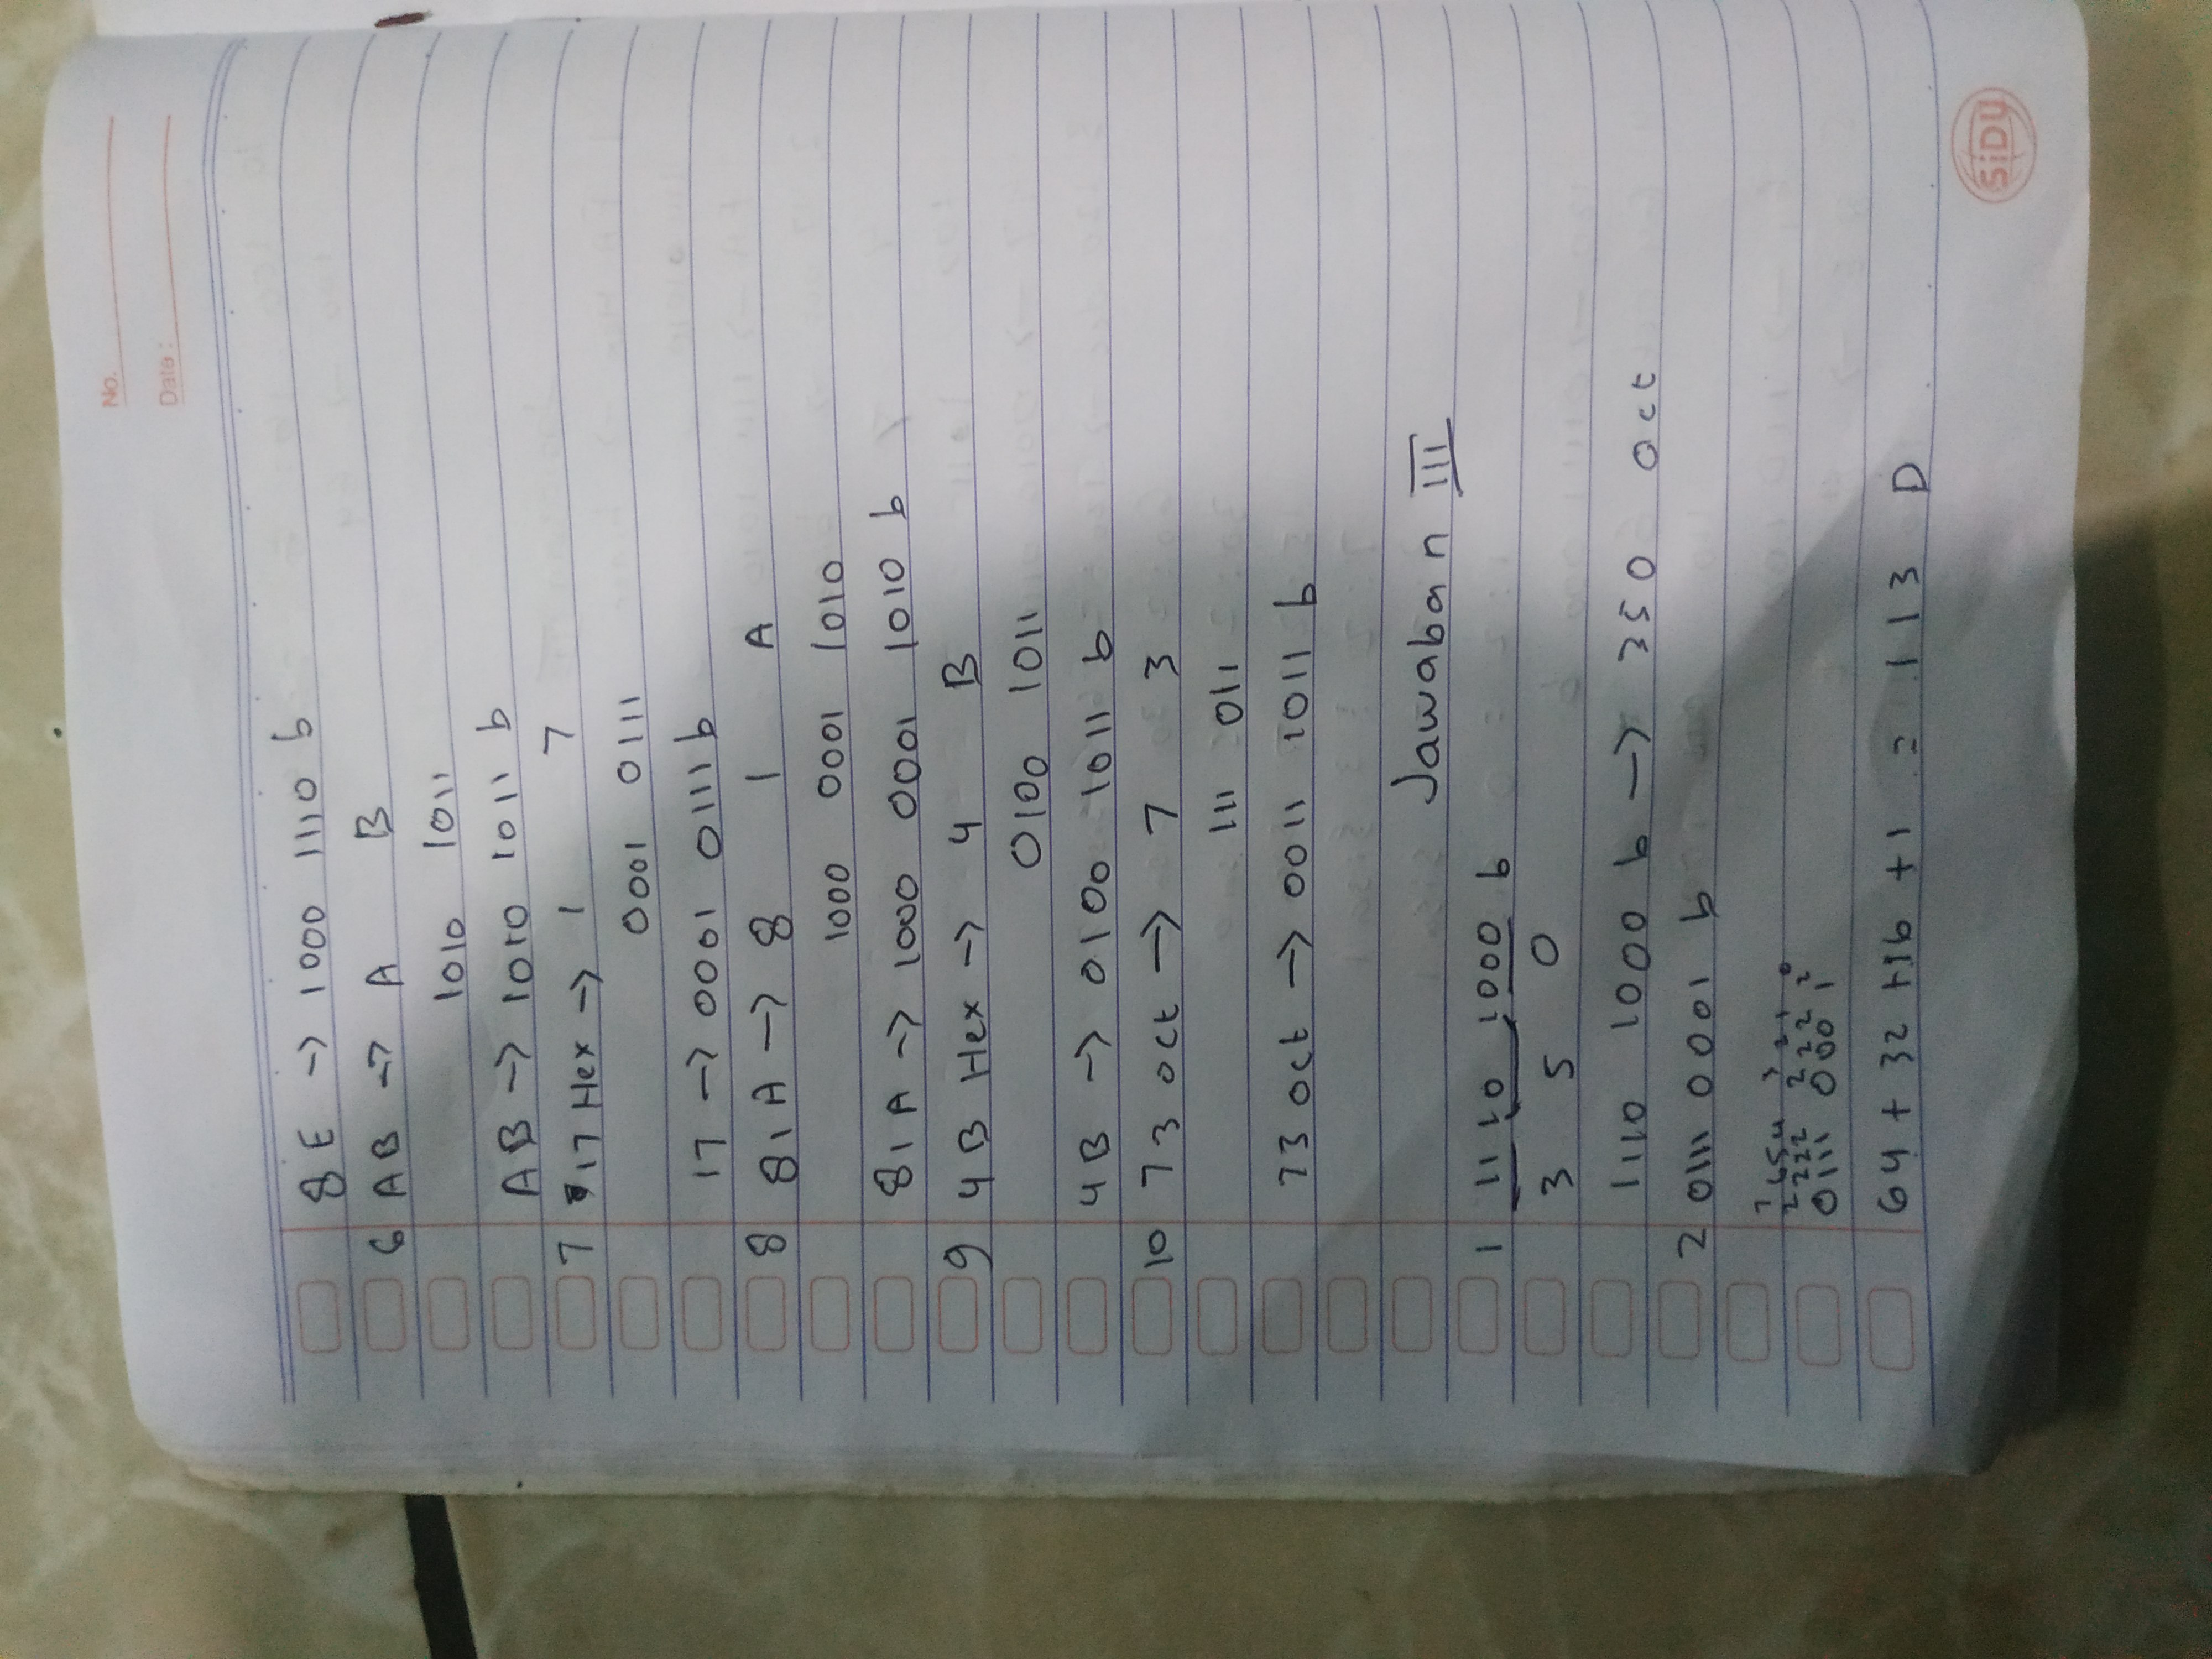 No.
Date :
8E -> 1000 1110 b
6 AB -> A B
1010 1011
AB -> 1010 1011 b
7 17 Hex -> 1 7
0001 0111
17 -> 0001 0111 b
8 81A -> 8 1 A
1000 0001 1010
81A -> 1000 0001 1010 b
9 4B Hex -> 4 B
0100 1011
4B -> 0100 1011 b
10 73 oct -> 7 3
111 011
73 oct -> 0011 1011 b
Jawaban III
1 1110 1000 b
3 5 0
1110 1000 b -> 350 oct
2 0111 0001 b
7 6 5 4 3 2 1 0
2 2 2 2 2 2 2 2
0111 0001
64 + 32 + 16 + 1 = 113 D
SiDU